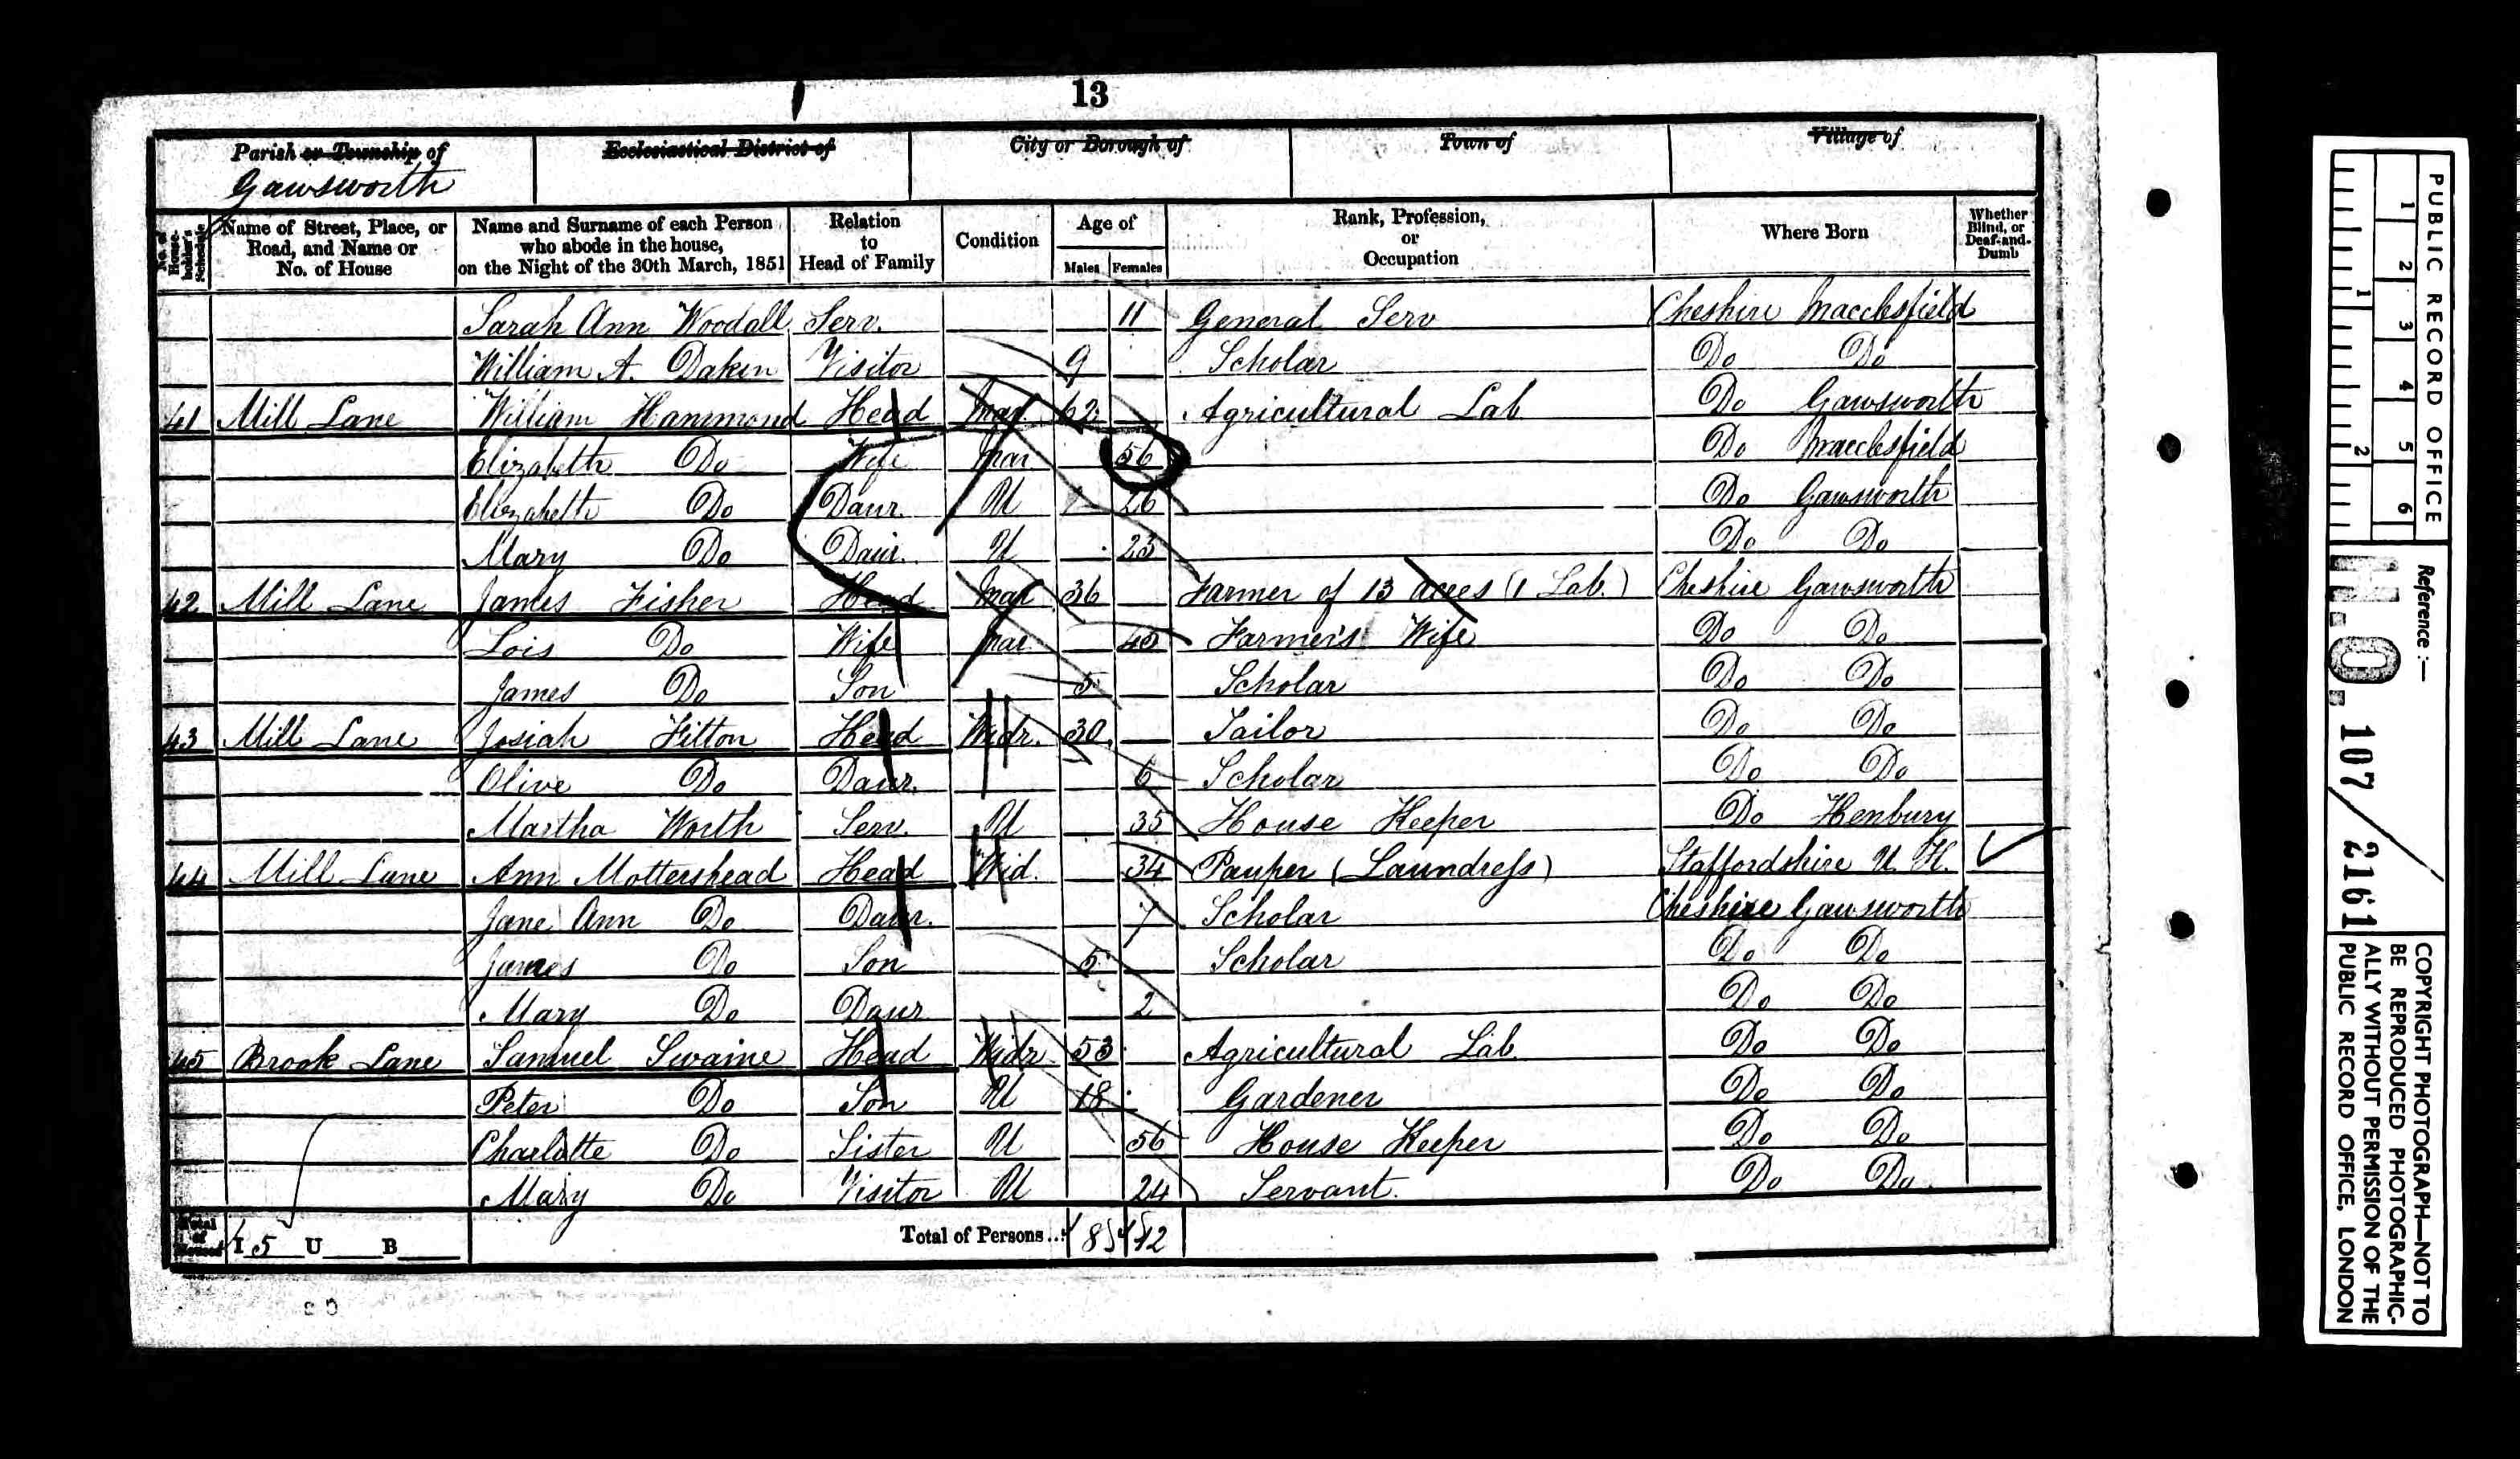 13
Parish or Township of
Gawsworth
Ecclesiastical District of
City or Borough of
Town of
Village of
No. of House-holder's Schedule
Name of Street, Place, or Road, and Name or No. of House
Name and Surname of each Person who abode in the house, on the Night of the 30th March, 1851
Relation to Head of Family
Condition
Age of
Males Females
Rank, Profession, or Occupation
Where Born
Whether Blind, or Deaf-and-Dumb
Sarah Ann Woodall Serv. 11 General Serv Cheshire Macclesfield
William A. Daken Visitor 9 Scholar Do Do
41 Mill Lane William Hammond Head Mar. 62 Agricultural Lab Do Gawsworth
Elizabeth Do Wife Mar 56 Do Macclesfield
Elizabeth Do Daur. U 26 Do Gawsworth
Mary Do Daur. U 23 Do Do
42 Mill Lane James Fisher Head Mar 36 Farmer of 13 acres (1 Lab.) Cheshire Gawsworth
Lois Do Wife Mar 45 Farmer's Wife Do Do
James Do Son 5 Scholar Do Do
43 Mill Lane Josiah Fitton Head Widr. 30 Tailor Do Do
Olive Do Daur. 6 Scholar Do Do
Martha Worth Serv. U 35 House Keeper Do Henbury
44 Mill Lane Ann Mottershead Head Wid. 34 Pauper (Laundress) Staffordshire U. K.
Jane Ann Do Daur. 7 Scholar Cheshire Gawsworth
James Do Son 5 Scholar Do Do
Mary Do Daur 2 Do Do
45 Brook Lane Samuel Swaine Head Widr 53 Agricultural Lab Do Do
Peter Do Son U 18 Gardener Do Do
Charlotte Do Sister U 56 House Keeper Do Do
Mary Do Visitor U 24 Servant. Do Do
Total of Houses I 5 U B Total of Persons... 8 12
PUBLIC RECORD OFFICE
1 2 3 4 5 6
1 2
Reference:—
H.O. 107/2161
COPYRIGHT PHOTOGRAPH—NOT TO
BE REPRODUCED PHOTOGRAPHIC-
ALLY WITHOUT PERMISSION OF THE
PUBLIC RECORD OFFICE, LONDON